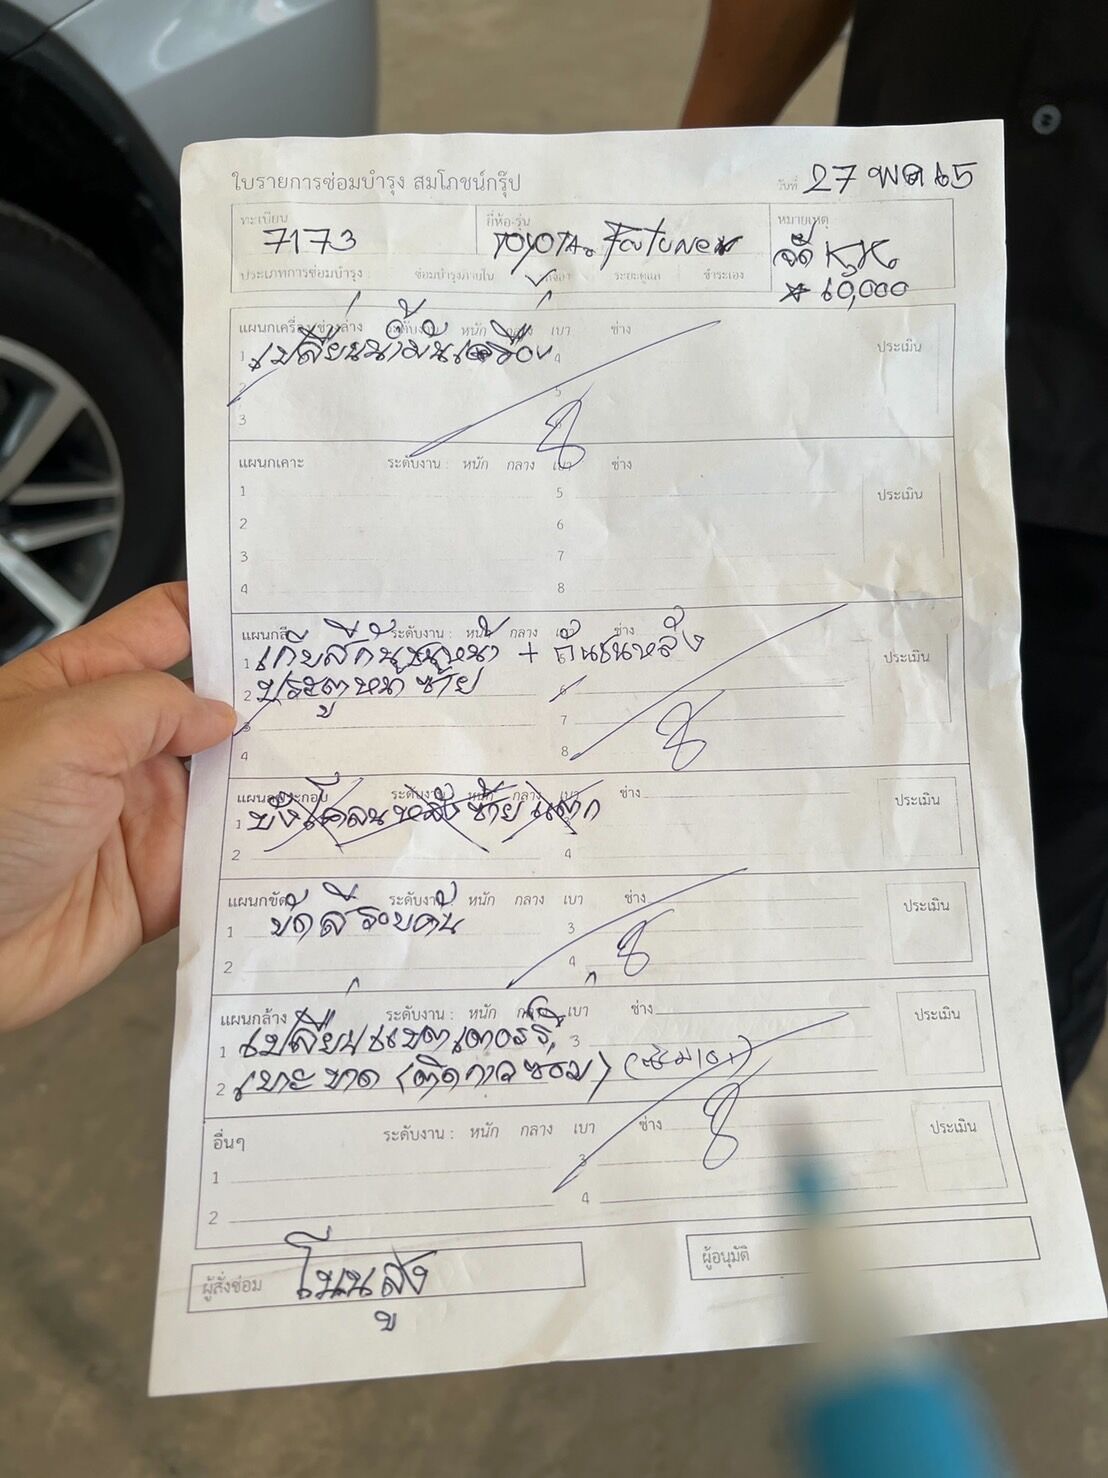 ใบรายการซ่อมบำรุง สมโภชน์กรุ๊ป
วันที่ 27 พค 65
ทะเบียน 7173
ยี่ห้อ-รุ่น TOYOTA Fortuner
หมายเหตุ
60,000
ประเภทการซ่อมบำรุง : ซ่อมบำรุงภายใน ชำระเอง
แผนกเครื่องช่วงล่าง ระดับงาน : หนัก กลาง เบา ช่าง
ประเมิน
1 เปลี่ยนน้ำมันเครื่อง 4
2 5
3
แผนกเคาะ ระดับงาน : หนัก กลาง เบา ช่าง
ประเมิน
1 5
2 6
3 7
4 8
แผนกสี ระดับงาน : หนัก กลาง ช่าง
ประเมิน
1 เก็บสีกันชนหน้า + กันชนหลัง
2 ประตูหน้าซ้าย 6
3 7
4 8
แผนกประกอบ ระดับงาน หนัก กลาง เบา ช่าง
ประเมิน
1 บังโคลนหลังซ้าย แตก
2 4
แผนกขัด ระดับงาน : หนัก กลาง เบา ช่าง
ประเมิน
1 ขัดสีรอบคัน 3
2 4
แผนกล้าง ระดับงาน : หนัก กลาง เบา ช่าง
ประเมิน
1 เปลี่ยนแบตเตอรรี่ 3
2 เบาะขาด (ติดกาวซ่อม)
อื่นๆ ระดับงาน : หนัก กลาง เบา ช่าง
ประเมิน
1 3
2 4
ผู้สั่งซ่อม โนนสูง
ผู้อนุมัติ